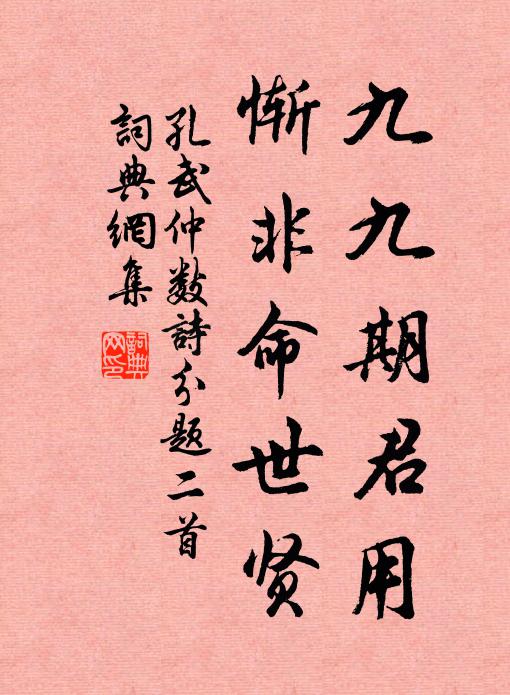 九九期君用
惭非命世贤
孔武仲数詩分题二首
詞典網集
詞典网印